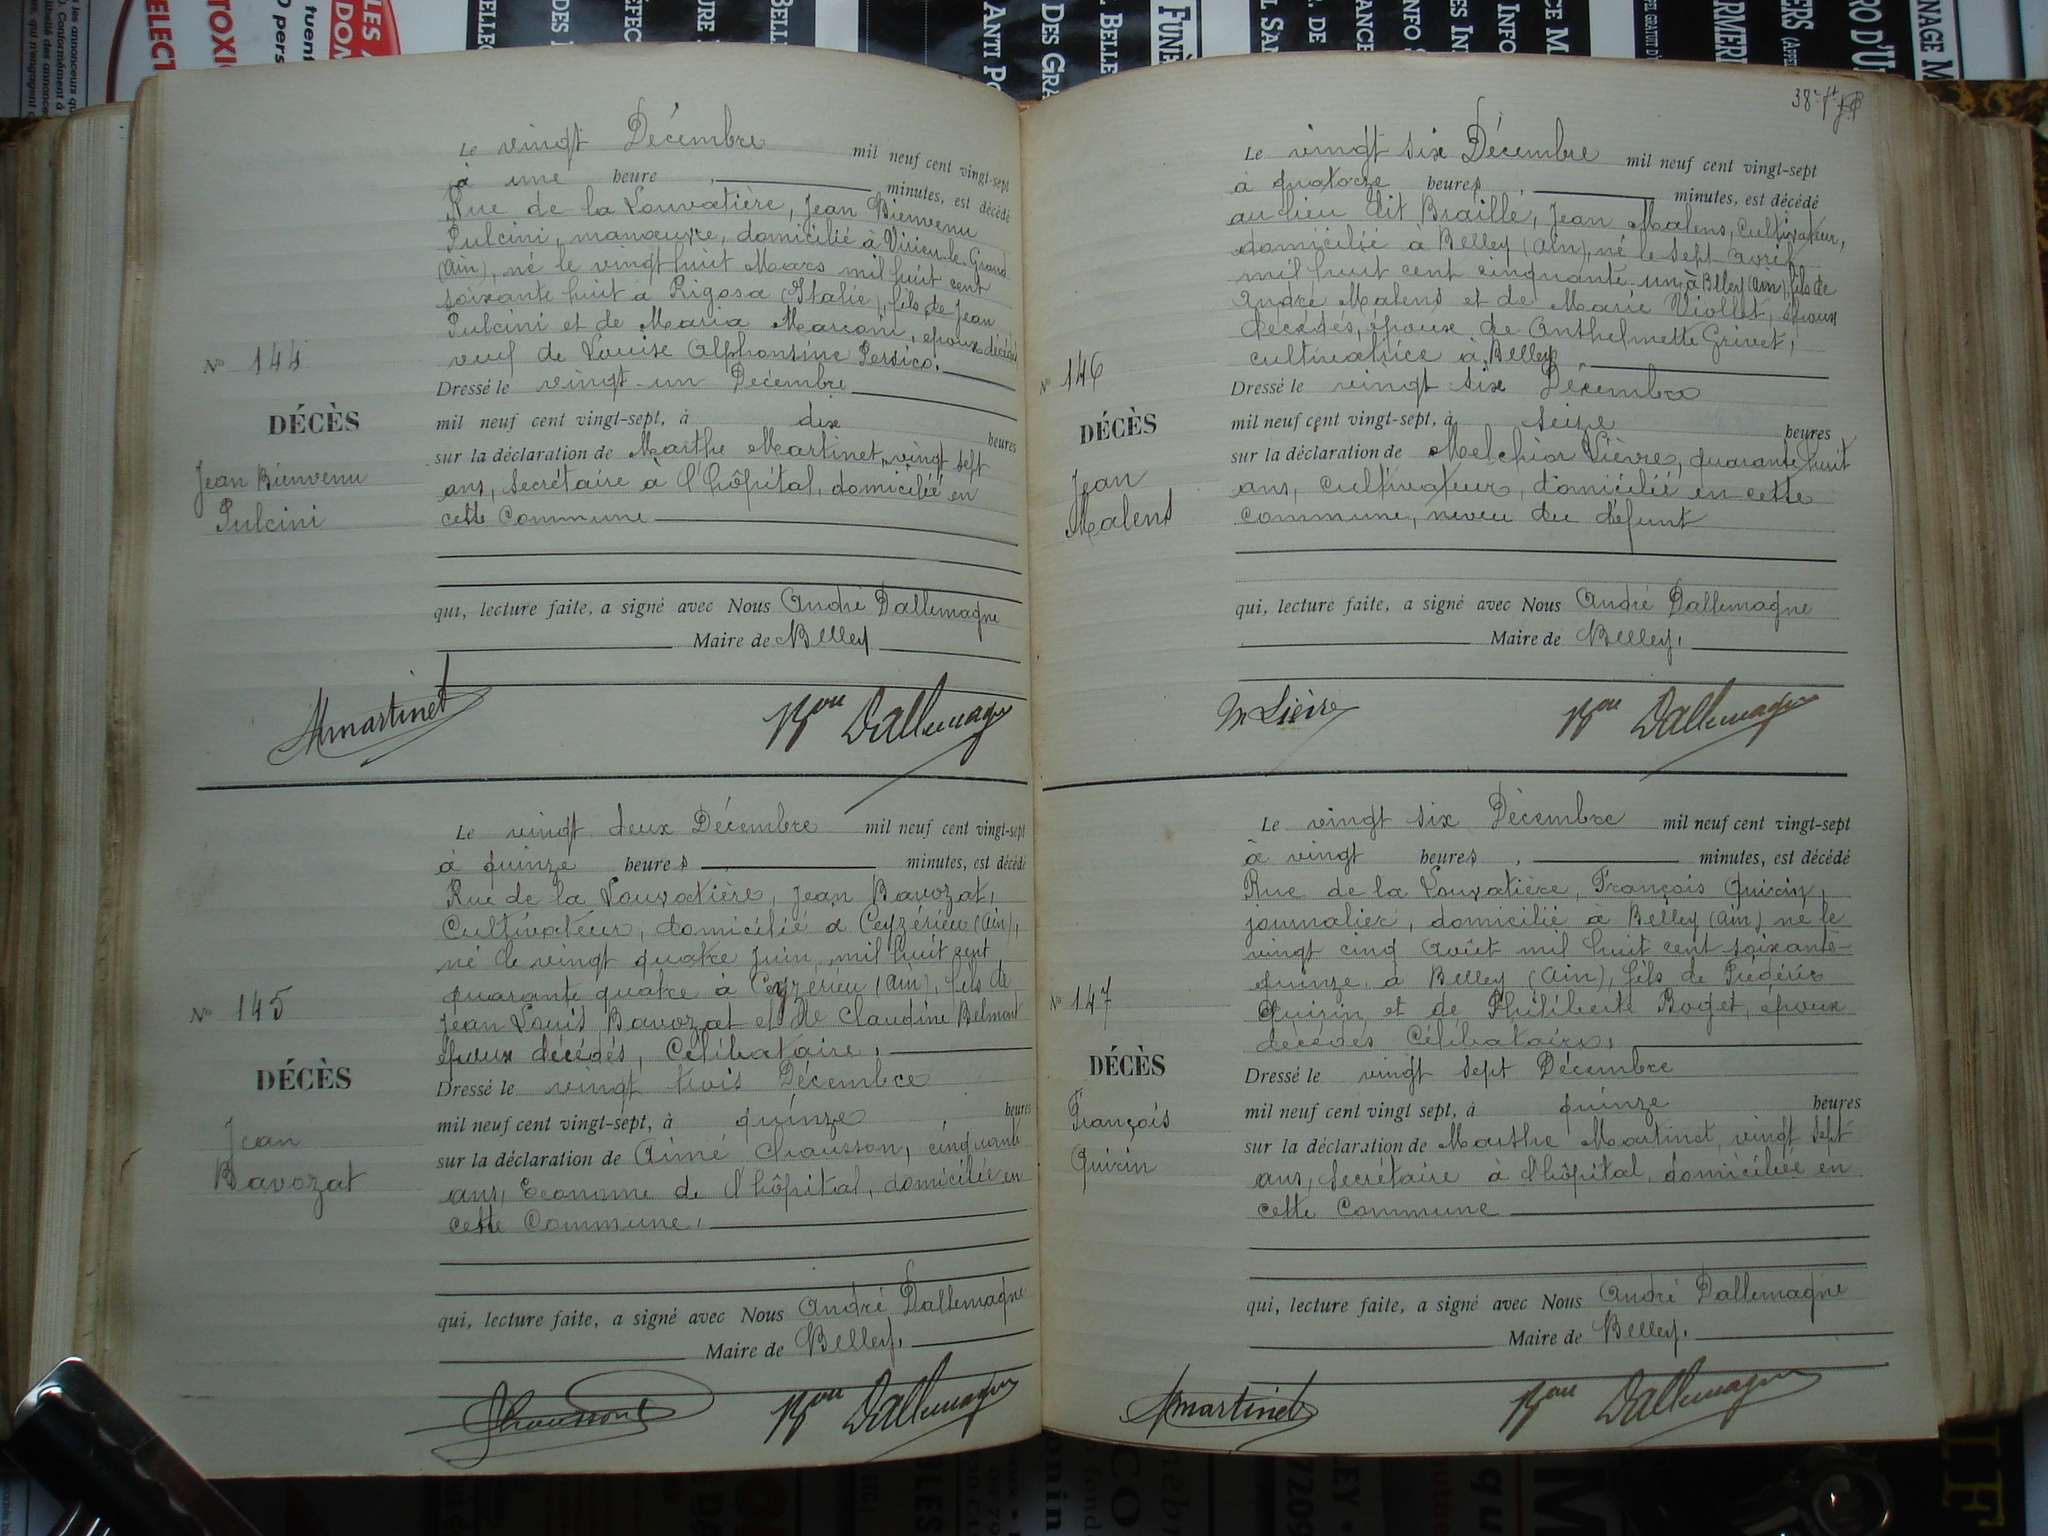 Le vingt Décembre mil neuf cent vingt-sept
à une heure, minutes, est décédé
Rue de la Louvatière, Jean Bienvenu
Pulcini, manœuvre, domicilié à Virieu-le-Grand
(Ain), né le vingt huit Mars mil huit cent
soixante huit à Rigosa (Italie), fils de Jean
Pulcini et de Maria Marconi, époux décédés
veuf de Louise Alphonsine Persico.
Nº 144
Dressé le vingt-un Décembre
DÉCÈS
mil neuf cent vingt-sept, à dix heures
sur la déclaration de Marthe Martinet, vingt sept
Jean Bienvenu
ans, Secrétaire à l'hôpital, domiciliée en
Pulcini
cette Commune
qui, lecture faite, a signé avec Nous André Dallemagne
Maire de Belley
Mmartinet Bon Dallemagne
Le vingt deux Décembre mil neuf cent vingt-sept
à quinze heures minutes, est décédé
Rue de la Louvatière, Jean Bavozat,
Cultivateur, domicilié à Ceyzérieu (Ain),
né le vingt quatre Juin, mil huit cent
quarante quatre à Ceyzérieu (Ain), fils de
Nº 145
Jean Louis Bavozat et de Claudine Belmont
époux décédés, Célibataire.
DÉCÈS
Dressé le vingt trois Décembre
mil neuf cent vingt-sept, à quinze heures
Jean
sur la déclaration de Aimé Chausson, cinquante
Bavozat
ans, Econome de l'hôpital, domicilié en
cette Commune.
qui, lecture faite, a signé avec Nous André Dallemagne
Maire de Belley.
Chausson Bon Dallemagne
38e ft
Le vingt six Décembre mil neuf cent vingt-sept
à quatorze heures, minutes, est décédé
au lieu dit Braille, Jean Malens, Cultivateur,
domicilié à Belley (Ain), né le sept Avril
mil huit cent cinquante-un à Belley (Ain), fils de
André Malens et de Marie Viollet, époux
décédés, époux de Anthelmette Grivet,
cultivatrice à Belley
Nº 146
Dressé le vingt six Décembre
DÉCÈS
mil neuf cent vingt-sept, à seize heures
sur la déclaration de Melchior Lièvre, quarante huit
Jean
ans, Cultivateur, domicilié en cette
Malens
commune, neveu du défunt
qui, lecture faite, a signé avec Nous André Dallemagne
Maire de Belley.
M Lièvre Bon Dallemagne
Le vingt six Décembre mil neuf cent vingt-sept
à vingt heures, minutes, est décédé
Rue de la Louvatière, François Quirin,
journalier, domicilié à Belley (Ain) né le
vingt cinq Août mil huit cent soixante-
quinze, à Belley (Ain), fils de Frédéric
Nº 147
Quirin et de Philiberte Boget, époux
décédés Célibataire.
DÉCÈS
Dressé le vingt sept Décembre
François
mil neuf cent vingt sept, à quinze heures
sur la déclaration de Marthe Martinet, vingt sept
Quirin
ans, Secrétaire à l'hôpital, domiciliée en
cette Commune
qui, lecture faite, a signé avec Nous André Dallemagne
Maire de Belley.
Mmartinet Bon Dallemagne